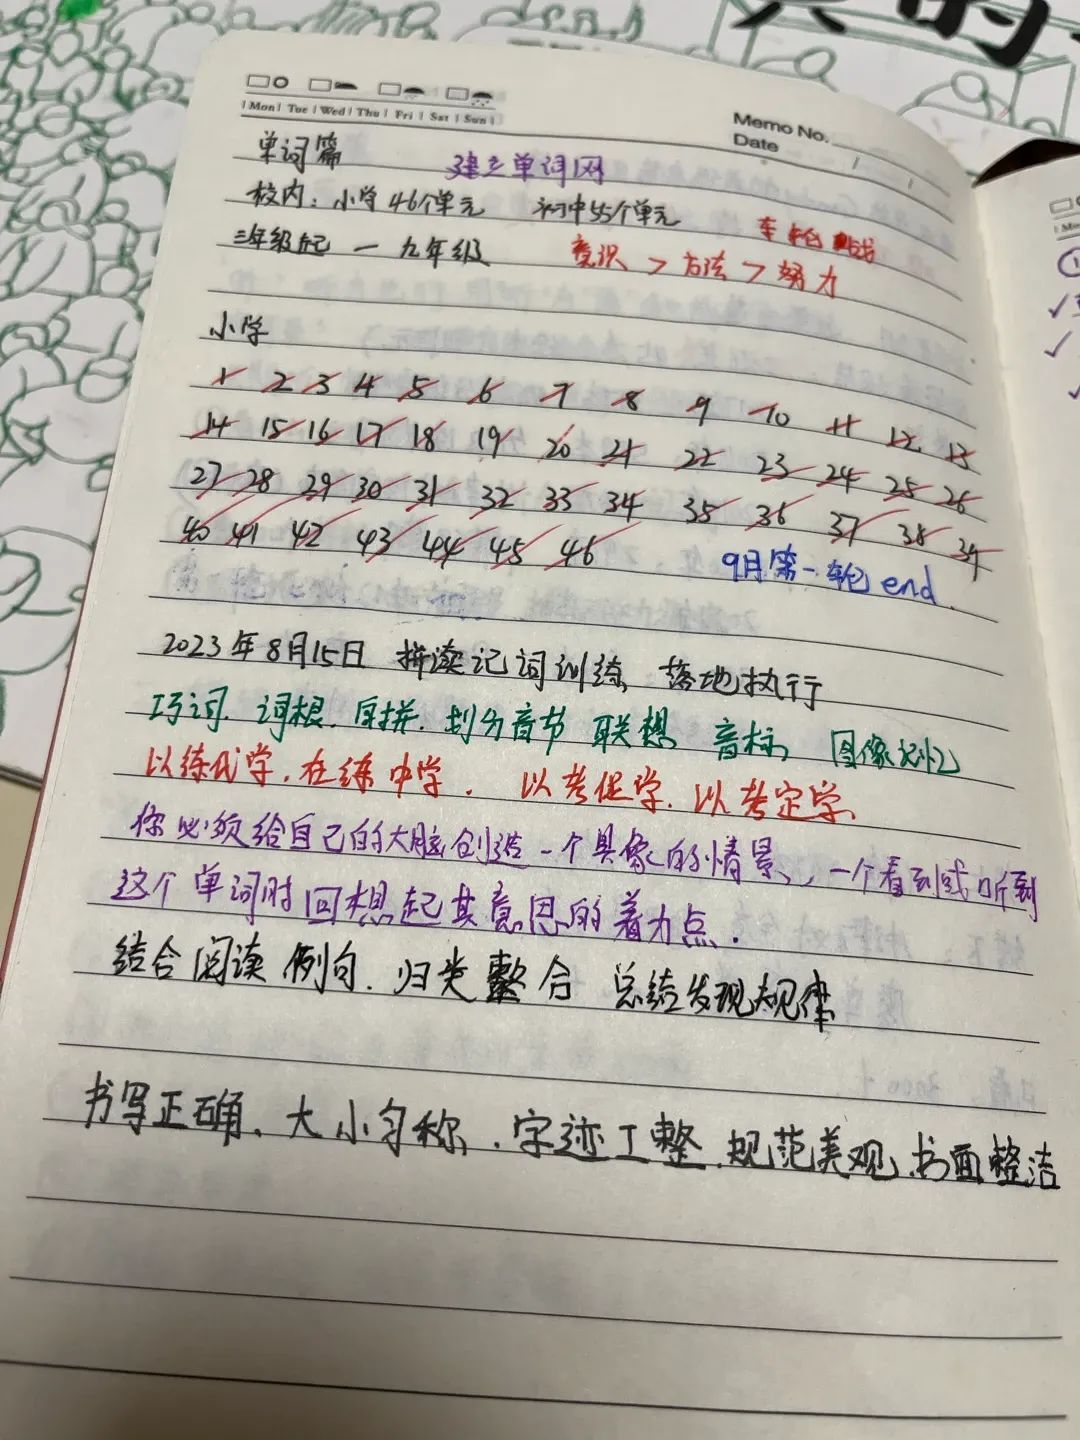 Mon Tue Wed Thu Fri Sat Sun
Memo No.
Date
单词篇 建立单词网
校内：小学46个单元 初中55个单元 车轮战
三年级起 — 九年级 意识 > 方法 > 努力
小学
1 2 3 4 5 6 7 8 9 10 11 12 13
14 15 16 17 18 19 20 21 22 23 24 25 26
27 28 29 30 31 32 33 34 35 36 37 38 39
40 41 42 43 44 45 46
9月第一轮 end.
2023年8月15日 拼读记词训练 落地执行
巧词. 词根. 自拼. 划分音节 联想 音标, 图像记忆
以练代学. 在练中学. 以考促学. 以考定学
你必须给自己的大脑创造一个具象的情景, 一个看到或听到
这个单词时回想起其意思的着力点.
结合阅读 例句. 归类整合 总结发现规律
书写正确. 大小匀称. 字迹工整. 规范美观. 书面整洁